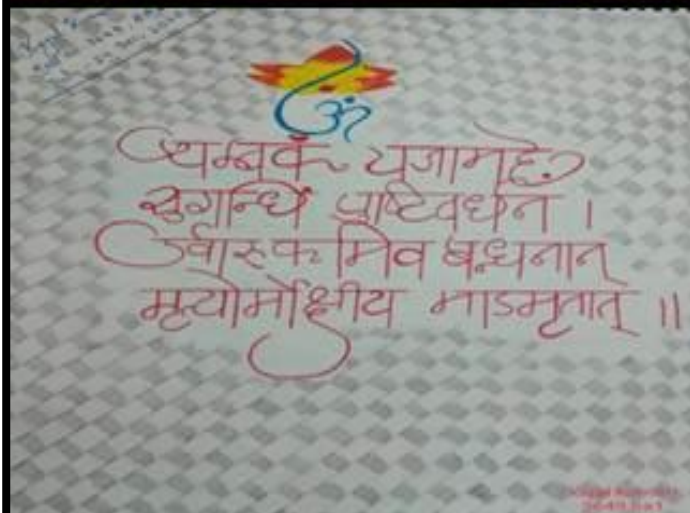 ॐ
त्र्यम्बकं यजामहे
सुगन्धिं पुष्टिवर्धनं ।
उर्वारुकमिव बन्धनान्
मृत्योर्मोक्षीय माऽमृतात् ॥